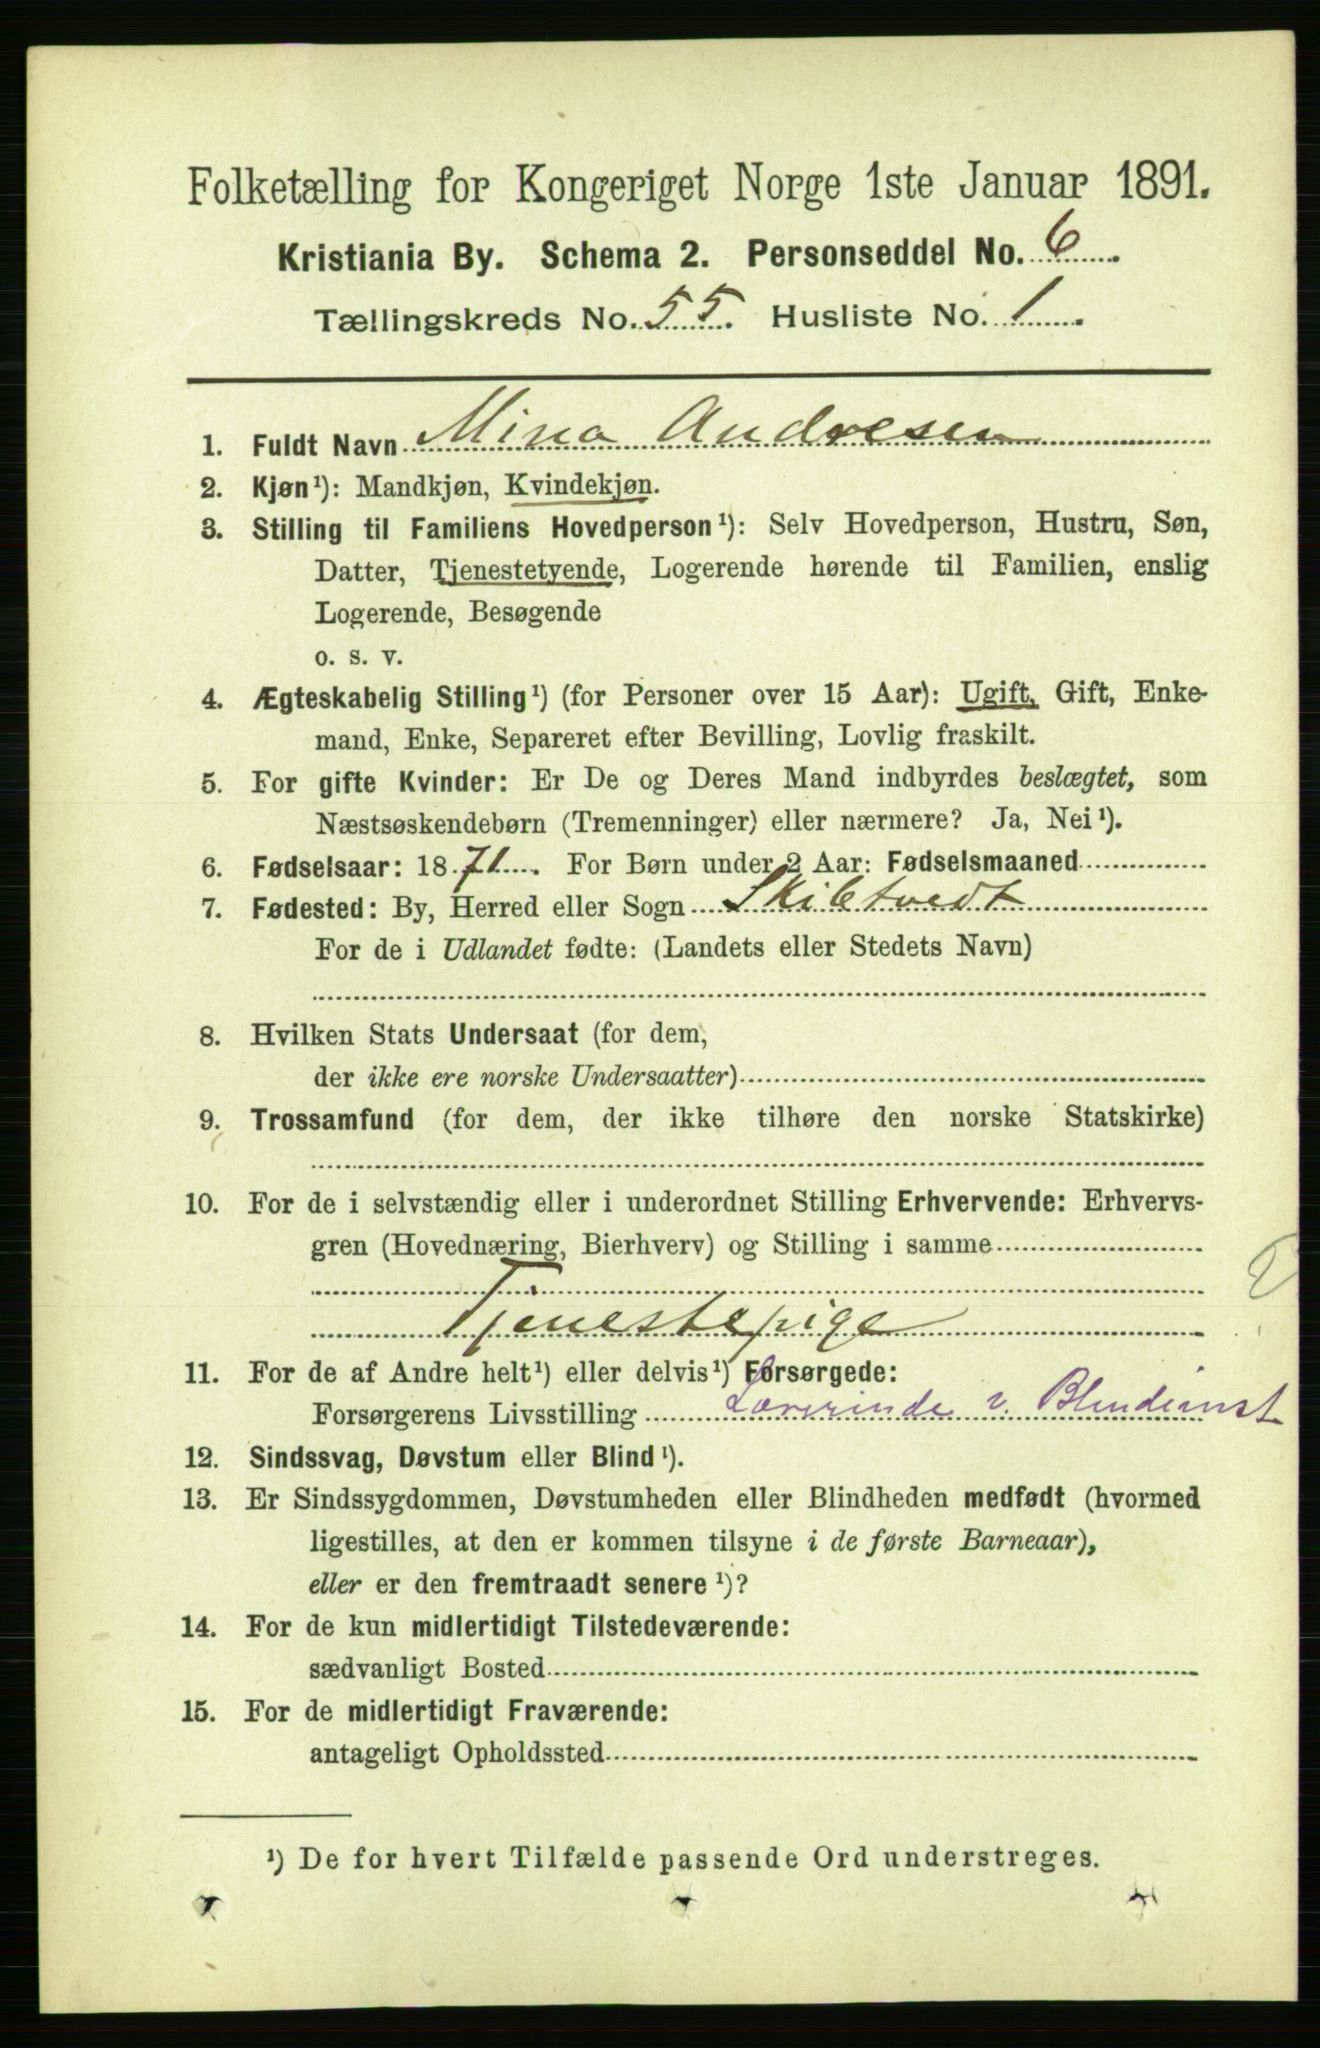 Folketælling for Kongeriget Norge 1ste Januar 1891.
Kristiania By. Schema 2. Personseddel No. 6
Tællingskreds No. 55. Husliste No. 1
1. Fuldt Navn Mina Andresen
2. Kjøn¹): Mandkjøn, Kvindekjøn.
3. Stilling til Familiens Hovedperson¹): Selv Hovedperson, Hustru, Søn,
Datter, Tjenestetyende, Logerende hørende til Familien, enslig
Logerende, Besøgende
o. s. v.
4. Ægteskabelig Stilling¹) (for Personer over 15 Aar): Ugift, Gift, Enke-
mand, Enke, Separeret efter Bevilling, Lovlig fraskilt.
5. For gifte Kvinder: Er De og Deres Mand indbyrdes beslægtet, som
Næstsøskendebørn (Tremenninger) eller nærmere? Ja, Nei¹).
6. Fødselsaar: 1871. For Børn under 2 Aar: Fødselsmaaned
7. Fødested: By, Herred eller Sogn Skibtvedt
For de i Udlandet fødte: (Landets eller Stedets Navn)
8. Hvilken Stats Undersaat (for dem,
der ikke ere norske Undersaatter)
9. Trossamfund (for dem, der ikke tilhøre den norske Statskirke)
10. For de i selvstændig eller i underordnet Stilling Erhvervende: Erhvervs-
gren (Hovednæring, Bierhverv) og Stilling i samme
Tjenestepige
11. For de af Andre helt¹) eller delvis¹) Forsørgede:
Forsørgerens Livsstilling Lærerinde v. Blindeinst
12. Sindssvag, Døvstum eller Blind¹).
13. Er Sindssygdommen, Døvstumheden eller Blindheden medfødt (hvormed
ligestilles, at den er kommen tilsyne i de første Barneaar),
eller er den fremtraadt senere¹)?
14. For de kun midlertidigt Tilstedeværende:
sædvanligt Bosted
15. For de midlertidigt Fraværende:
antageligt Opholdssted
¹) De for hvert Tilfælde passende Ord understreges.